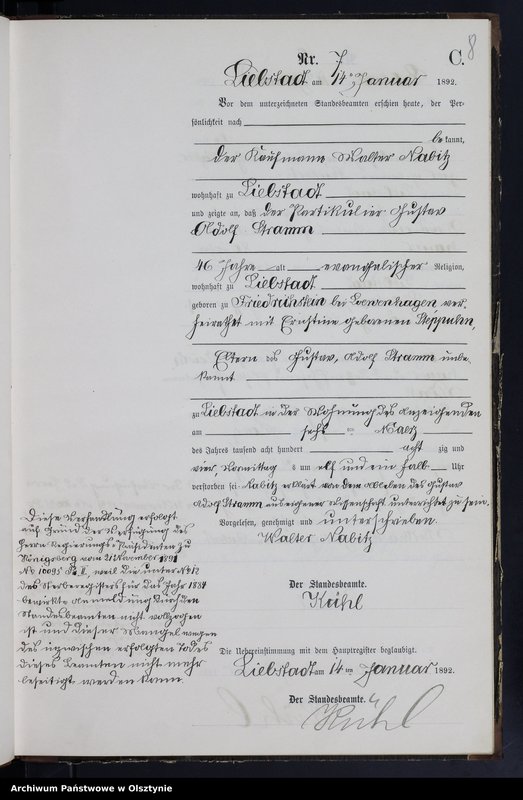 8
Nr. 7 C.
Liebstadt am 14. Januar 1892.
Vor dem unterzeichneten Standesbeamten erschien heute, der Per-
sönlichkeit nach
be kannt,
der Kaufmann Walter Nabitz
wohnhaft zu Liebstadt
und zeigte an, daß der Partikulier Gustav
Adolf Stramm
46 Jahre alt evangelischer Religion,
wohnhaft zu Liebstadt
geboren zu Friedrichstein bei Loewenhagen ver-
heirathet mit Christine geborenen Steppuhn,
Eltern des Gustav, Adolf Stramm unbe-
kannt
zu Liebstadt in der Wohnung des Anzeigenden
am sechs ten Maerz
des Jahres tausend acht hundert acht zig und
vier, Vormittag s um elf und ein halb Uhr
verstorben sei Nabitz erklärt von dem Ableben des Gustav
Adolf Stramm aus eigener Wissenschaft unterrichtet zu sein.
Vorgelesen, genehmigt und unterschrieben.
Walter Nabitz
Diese Verhandlung erfolgt
auf Grund der Verfügung des
Herrn Regierungs-Präsidenten zu
Königsberg vom 21 November 1891
No 10095 weil die unter No 12
des Sterberegisters für das Jahr 1884
bewirkte Anmeldung durch den
Standesbeamten nicht vollzogen
ist und dieser Mangel wegen
des inzwischen erfolgten Todes
dieses Beamten nicht mehr
beseitigt werden kann.
Der Standesbeamte.
Kühl
Die Uebereinstimmung mit dem Hauptregister beglaubigt.
Liebstadt am 14 ten Januar 1892.
Der Standesbeamte.
Kühl
Archiwum Państwowe w Olsztynie